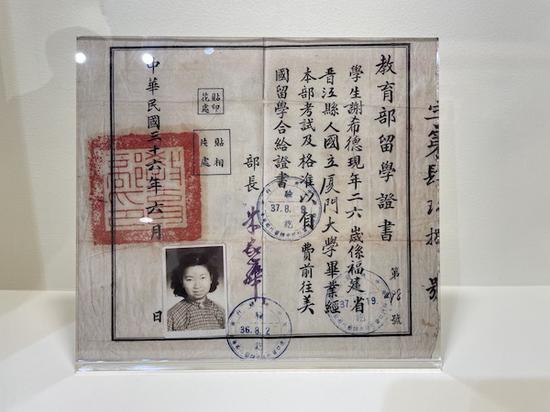 教育部留學證書
第 號
學生謝希德現年二六歲係福建省
晋江縣人國立厦門大學畢業經
本部考試及格准以自費前往美
國留學合給證書
部長 朱家驊
貼印
花處
貼相
片處
中華民國三十六年六月 日
驗
37.8.
訖
36.8.2